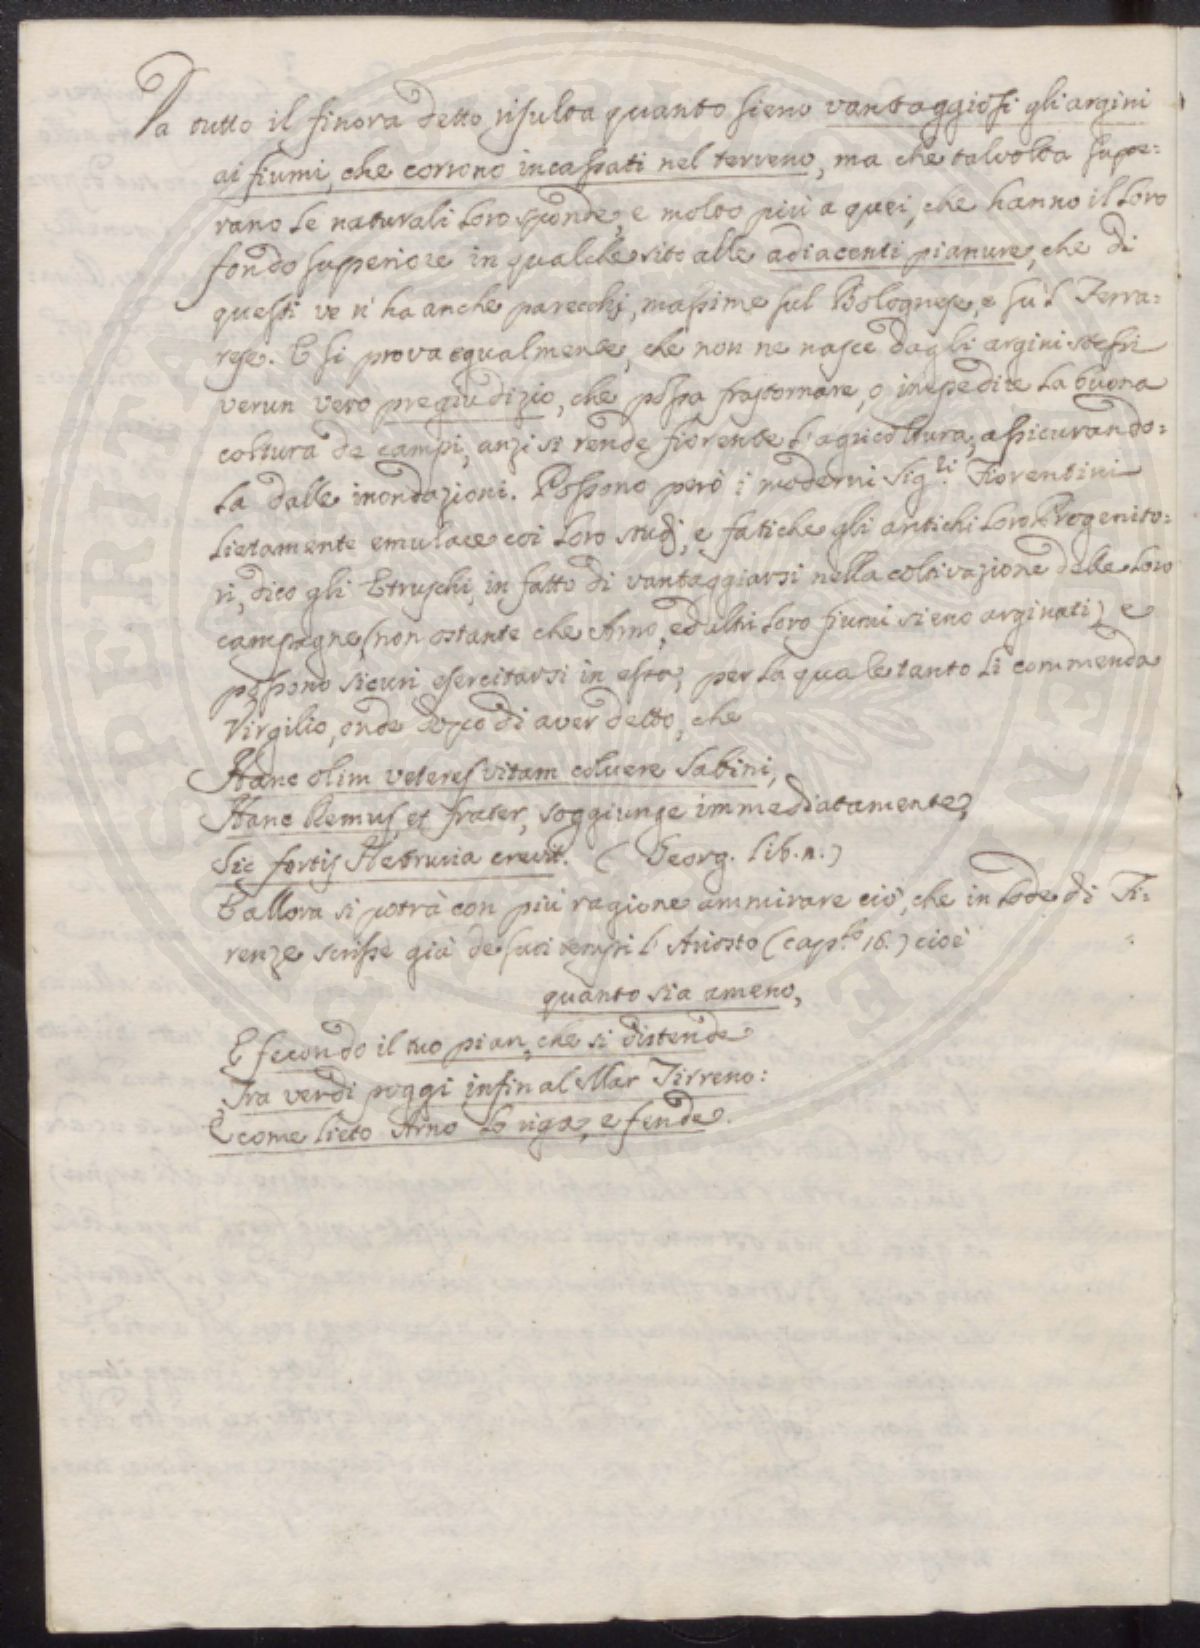 Da tutto il finora detto risulta quanto sieno vantaggiosi gli argini
ai fiumi, che corrono incassati nel terreno, ma che talvolta supe=
rano le naturali loro sponde, e molto più a quei, che hanno il loro
fondo superiore in qualche sito alle adiacenti pianure, che di
questi ve n'ha anche parecchj, massime sul Bolognese, e su'l Ferra=
rese. E si prova egualmente, che non ne nasce dagli argini stessi
verun vero pregiudizio, che possa frastornare, o impedire la buona
coltura de campi, anzi si rende fiorente l'agricoltura, assicurando=
la dalle inondazioni. Possono però i moderni Sig.ri Fiorentini
lietamente emulare coi loro studj, e fatiche gli antichi loro Progenito=
ri, dico gli Etruschi, in fatto di vantaggiarsi nella coltivazione delle loro
campagne, (non ostante che Arno, ed altri loro fiumi sieno arginati) e
possono sicuri esercitarsi in essa, per la quale tanto li commenda
Virgilio, onde dopo di aver detto, che
Hanc olim veteres vitam coluere Sabini,
Hanc Remus, et frater, soggiunge immediatamente,
Sic fortis Hetruria crevit. (Georg. lib. 2.)
E allora si potrà con più ragione ammirare ciò, che in lode di Fi=
renze scrisse già de suoi tempi l'Ariosto (cap.lo 16.) cioè
quanto sia ameno,
E fecondo il tuo pian, che si distende
Tra verdi poggi infin al Mar Tirreno:
E come lieto Arno lo riga, e fende.